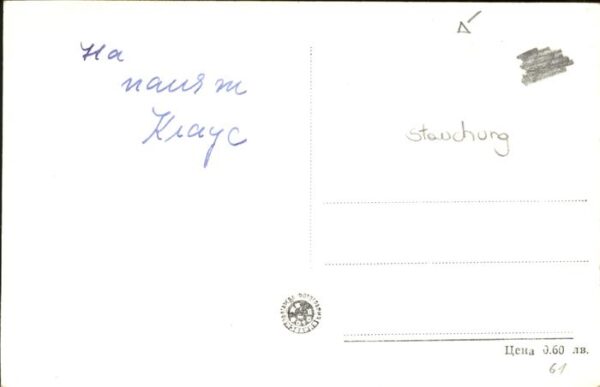 На
памят
Клаус
stauchung
Цена 0.60 лв.
61